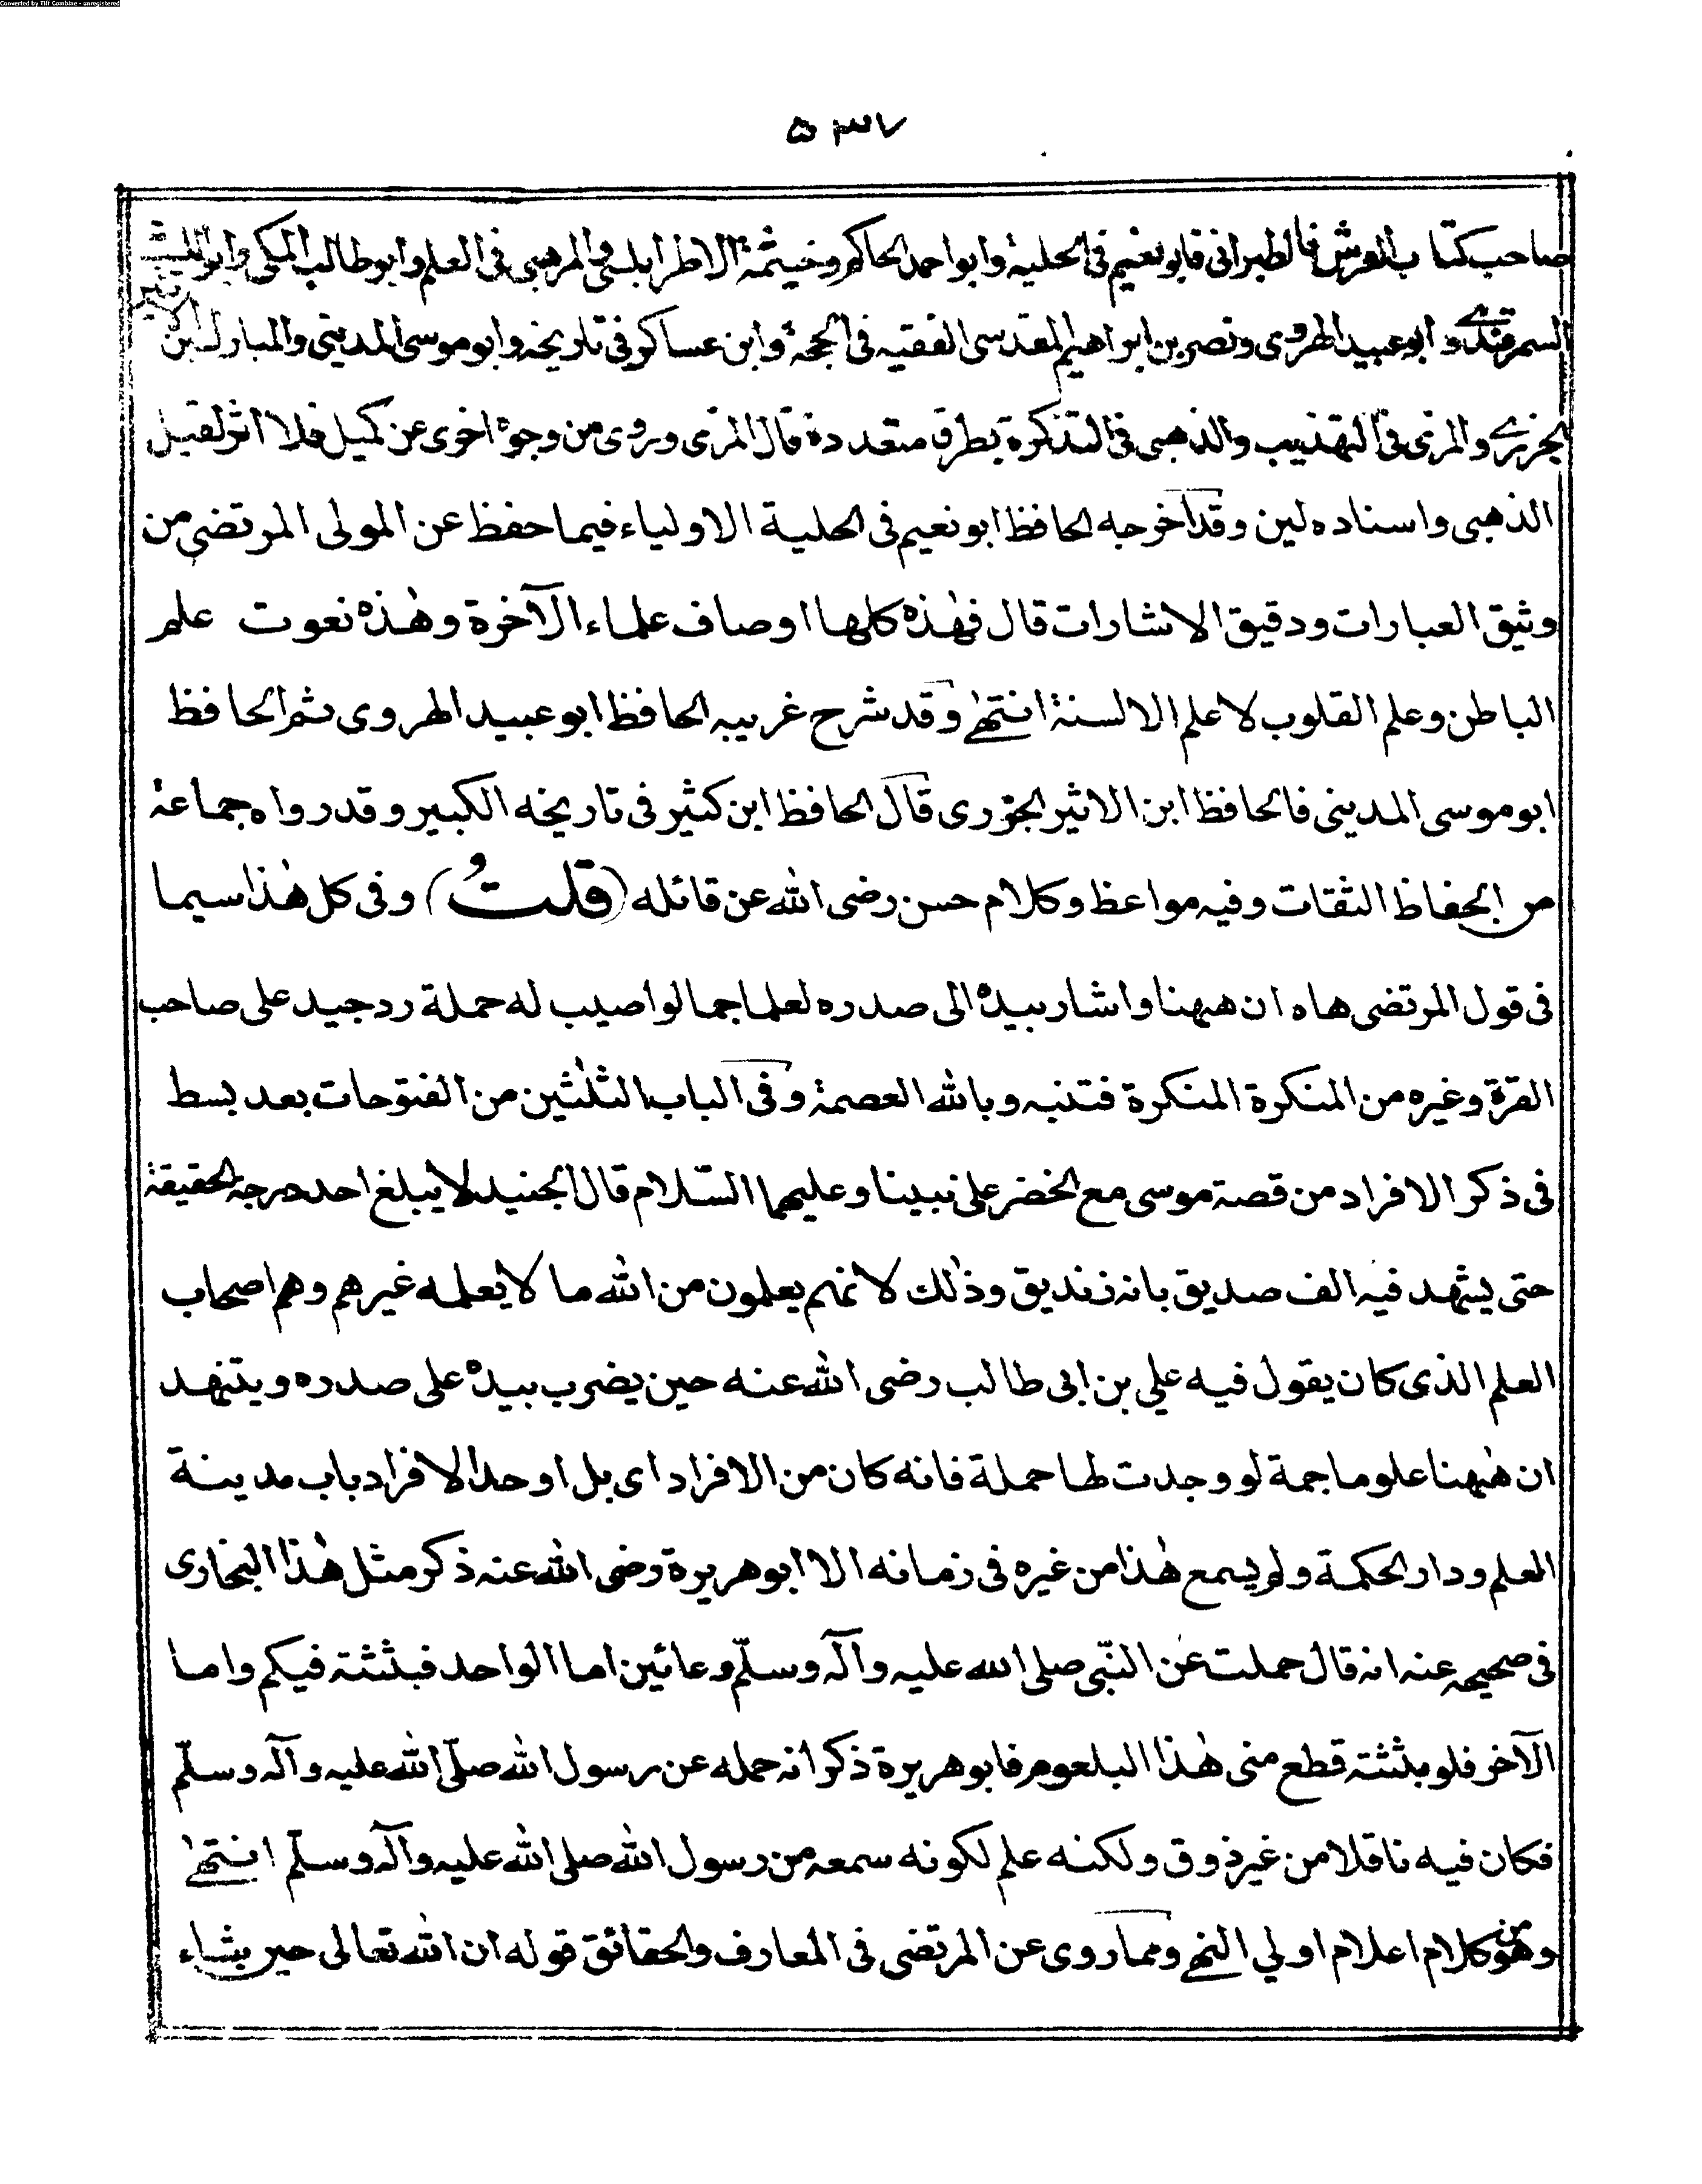 Converted by Tiff Combine - unregistered
۵۳۷
صاحب كتاب العرش فالطبرانى فابو نعيم فى الحلية وابو احمد الحاكم وخيثمة الاطرابلسى والمرهبى فى العلم وابو طالب المكى وابو الليث
السمرقندے وابو عبيد الهروى ونصر بن ابراهيم المقدسى الفقيه فى الحجة وابن عساكر فى تاريخه وابو موسى المدينى والمبارك بن الاثير
الجزرے والمزى فى التهذيب والذهبى فى التذكرة بطرق متعددة قال المزى وروى من وجوه اخرى عن كميل فلا اثر لقيل
الذهبى واسناده لين وقد اخرجه الحافظ ابو نعيم فى الحلية الاولياء فيما حفظ عن المولى المرتضى من
وثيق العبارات ودقيق الاشارات قال فهٰذه كلها اوصاف علماء الآخرة وهٰذه نعوت علم
الباطن وعلم القلوب لا علم الالسنة انتهےٰ وقد شرح غريبه الحافظ ابو عبيد الهروى ثم الحافظ
ابو موسى المدينى فالحافظ ابن الاثير الجزرى قال الحافظ ابن كثير فى تاريخه الكبير وقد رواه جماعة
من الحفاظ الثقات وفيه مواعظ وكلام حسن رضى الله عن قائله (قلتُ) وفى كل هٰذا سيما
فى قول المرتضى هاه ان ههنا واشار بيده الى صدره لعلما جما لو اصيب له حملة رد جيد على صاحب
القرة وغيره من المنكرة المنكرة فتنبه وبالله العصمة وفى الباب الثلٰثين من الفتوحات بعد بسط
فى ذكر الافراد من قصة موسى مع الخضر على نبينا وعليهما السّلام قال الجنيد لا يبلغ احد درجة الحقيقة
حتى يشهد فيه الف صديق بانه زنديق وذٰلك لانهم يعلمون من الله ما لا يعلمه غيرهم وهم اصحاب
العلم الذى كان يقول فيه علي بن ابى طالب رضى الله عنه حين يضرب بيده على صدره ويتنهد
ان هٰهنا علوما جمة لو وجدت لها حملة فانه كان من الافراد اى بل اوحد الافراد باب مدينة
العلم ودار الحكمة ولم يسمع هٰذا من غيره فى زمانه الا ابو هريرة رضى الله عنه ذكر مثل هٰذا البخارى
فى صحيحه عنه انه قال حملت عن النّبى صلى الله عليه وآله وسلّم وعائين اما الواحد فبثثته فيكم واما
الآخر فلو بثثته قطع منى هٰذا البلعوم فابو هريرة ذكر انه حمله عن رسول الله صلّى الله عليه وآله وسلّم
فكان فيه ناقلا من غير ذوق ولكنه علم لكونه سمعه من رسول الله صلى الله عليه وآله وسلّم انتهےٰ
وهو من كلام اعلام اولي النهے ومما روى عن المرتضى فى المعارف والحقائق قوله ان الله تعالى حين يشاء